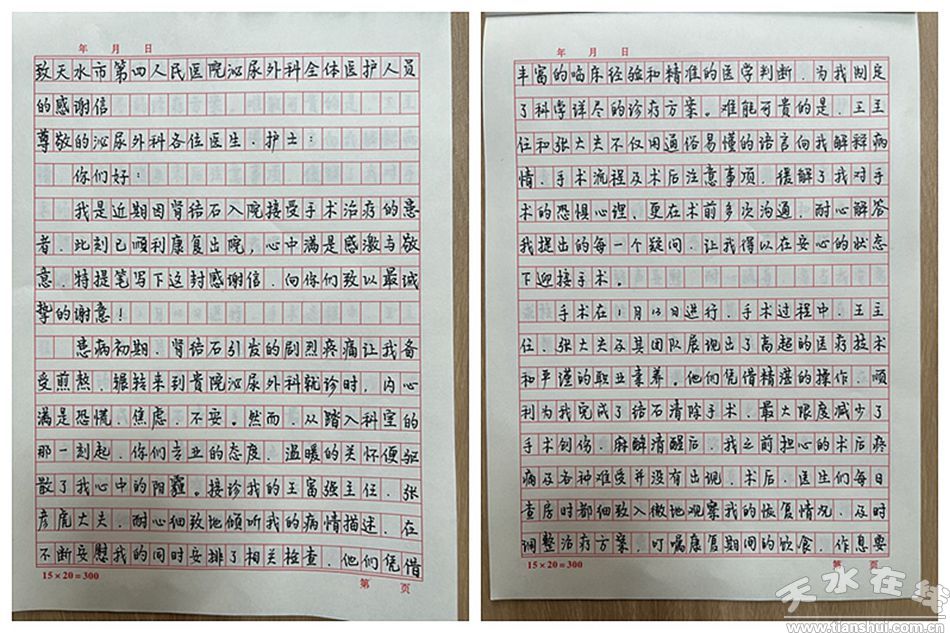 年 月 日
致天水市第四人民医院泌尿外科全体医护人员
的感谢信
尊敬的泌尿外科各位医生、护士：
你们好：
我是近期因肾结石入院接受手术治疗的患
者，此刻已顺利康复出院，心中满是感激与敬
意，特提笔写下这封感谢信，向你们致以最诚
挚的谢意！
患病初期，肾结石引发的剧烈疼痛让我备
受煎熬，辗转来到贵院泌尿外科就诊时，内心
满是恐慌、焦虑、不安。然而，从踏入科室的
那一刻起，你们专业的态度、温暖的关怀便驱
散了我心中的阴霾。接诊我的王富强主任、张
彦虎大夫，耐心细致地倾听我的病情描述，在
不断安慰我的同时安排了相关检查，他们凭借
15×20=300
第 页
年 月 日
丰富的临床经验和精准的医学判断，为我制定
了科学详尽的诊疗方案。难能可贵的是，王主
任和张大夫不仅用通俗易懂的语言向我解释病
情、手术流程及术后注意事项，缓解了我对手
术的恐惧心理，更在术前多次沟通，耐心解答
我提出的每一个疑问，让我得以在安心的状态
下迎接手术。
手术在1月13日进行，手术过程中，王主
任、张大夫及其团队展现出了高超的医疗技术
和严谨的职业素养。他们凭借精湛的操作，顺
利为我完成了结石清除手术，最大限度减少了
手术创伤，麻醉清醒后，我之前担心的术后疼
痛及各种难受并没有出现，术后，医生们每日
查房时都细致入微地观察我的恢复情况，及时
调整治疗方案，叮嘱康复期间的饮食、作息要
15×20=300
第 页
天水在线
www.tianshui.com.cn